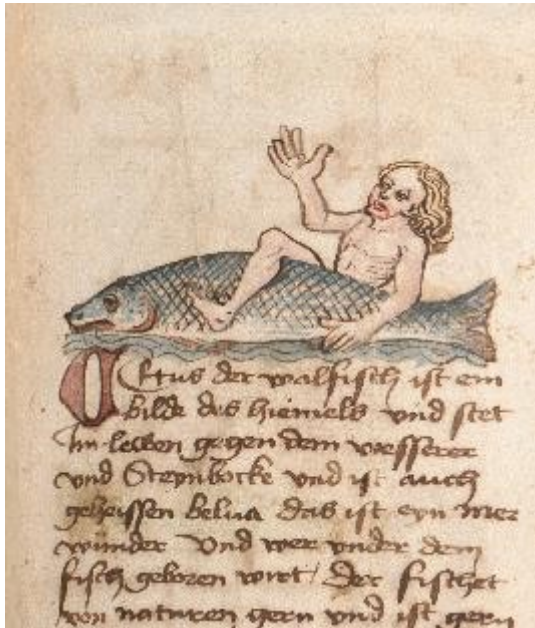 Cetus der walfisch ist ein
bilde des hiemels und stet
Im lewen gegen dem wesserer
und Steynbocke und ist auch
geheissen belua das ist eyn mer
wunder Und wer under dem
fisch geboren wirt / Der fischet
von naturen gern und ist gern